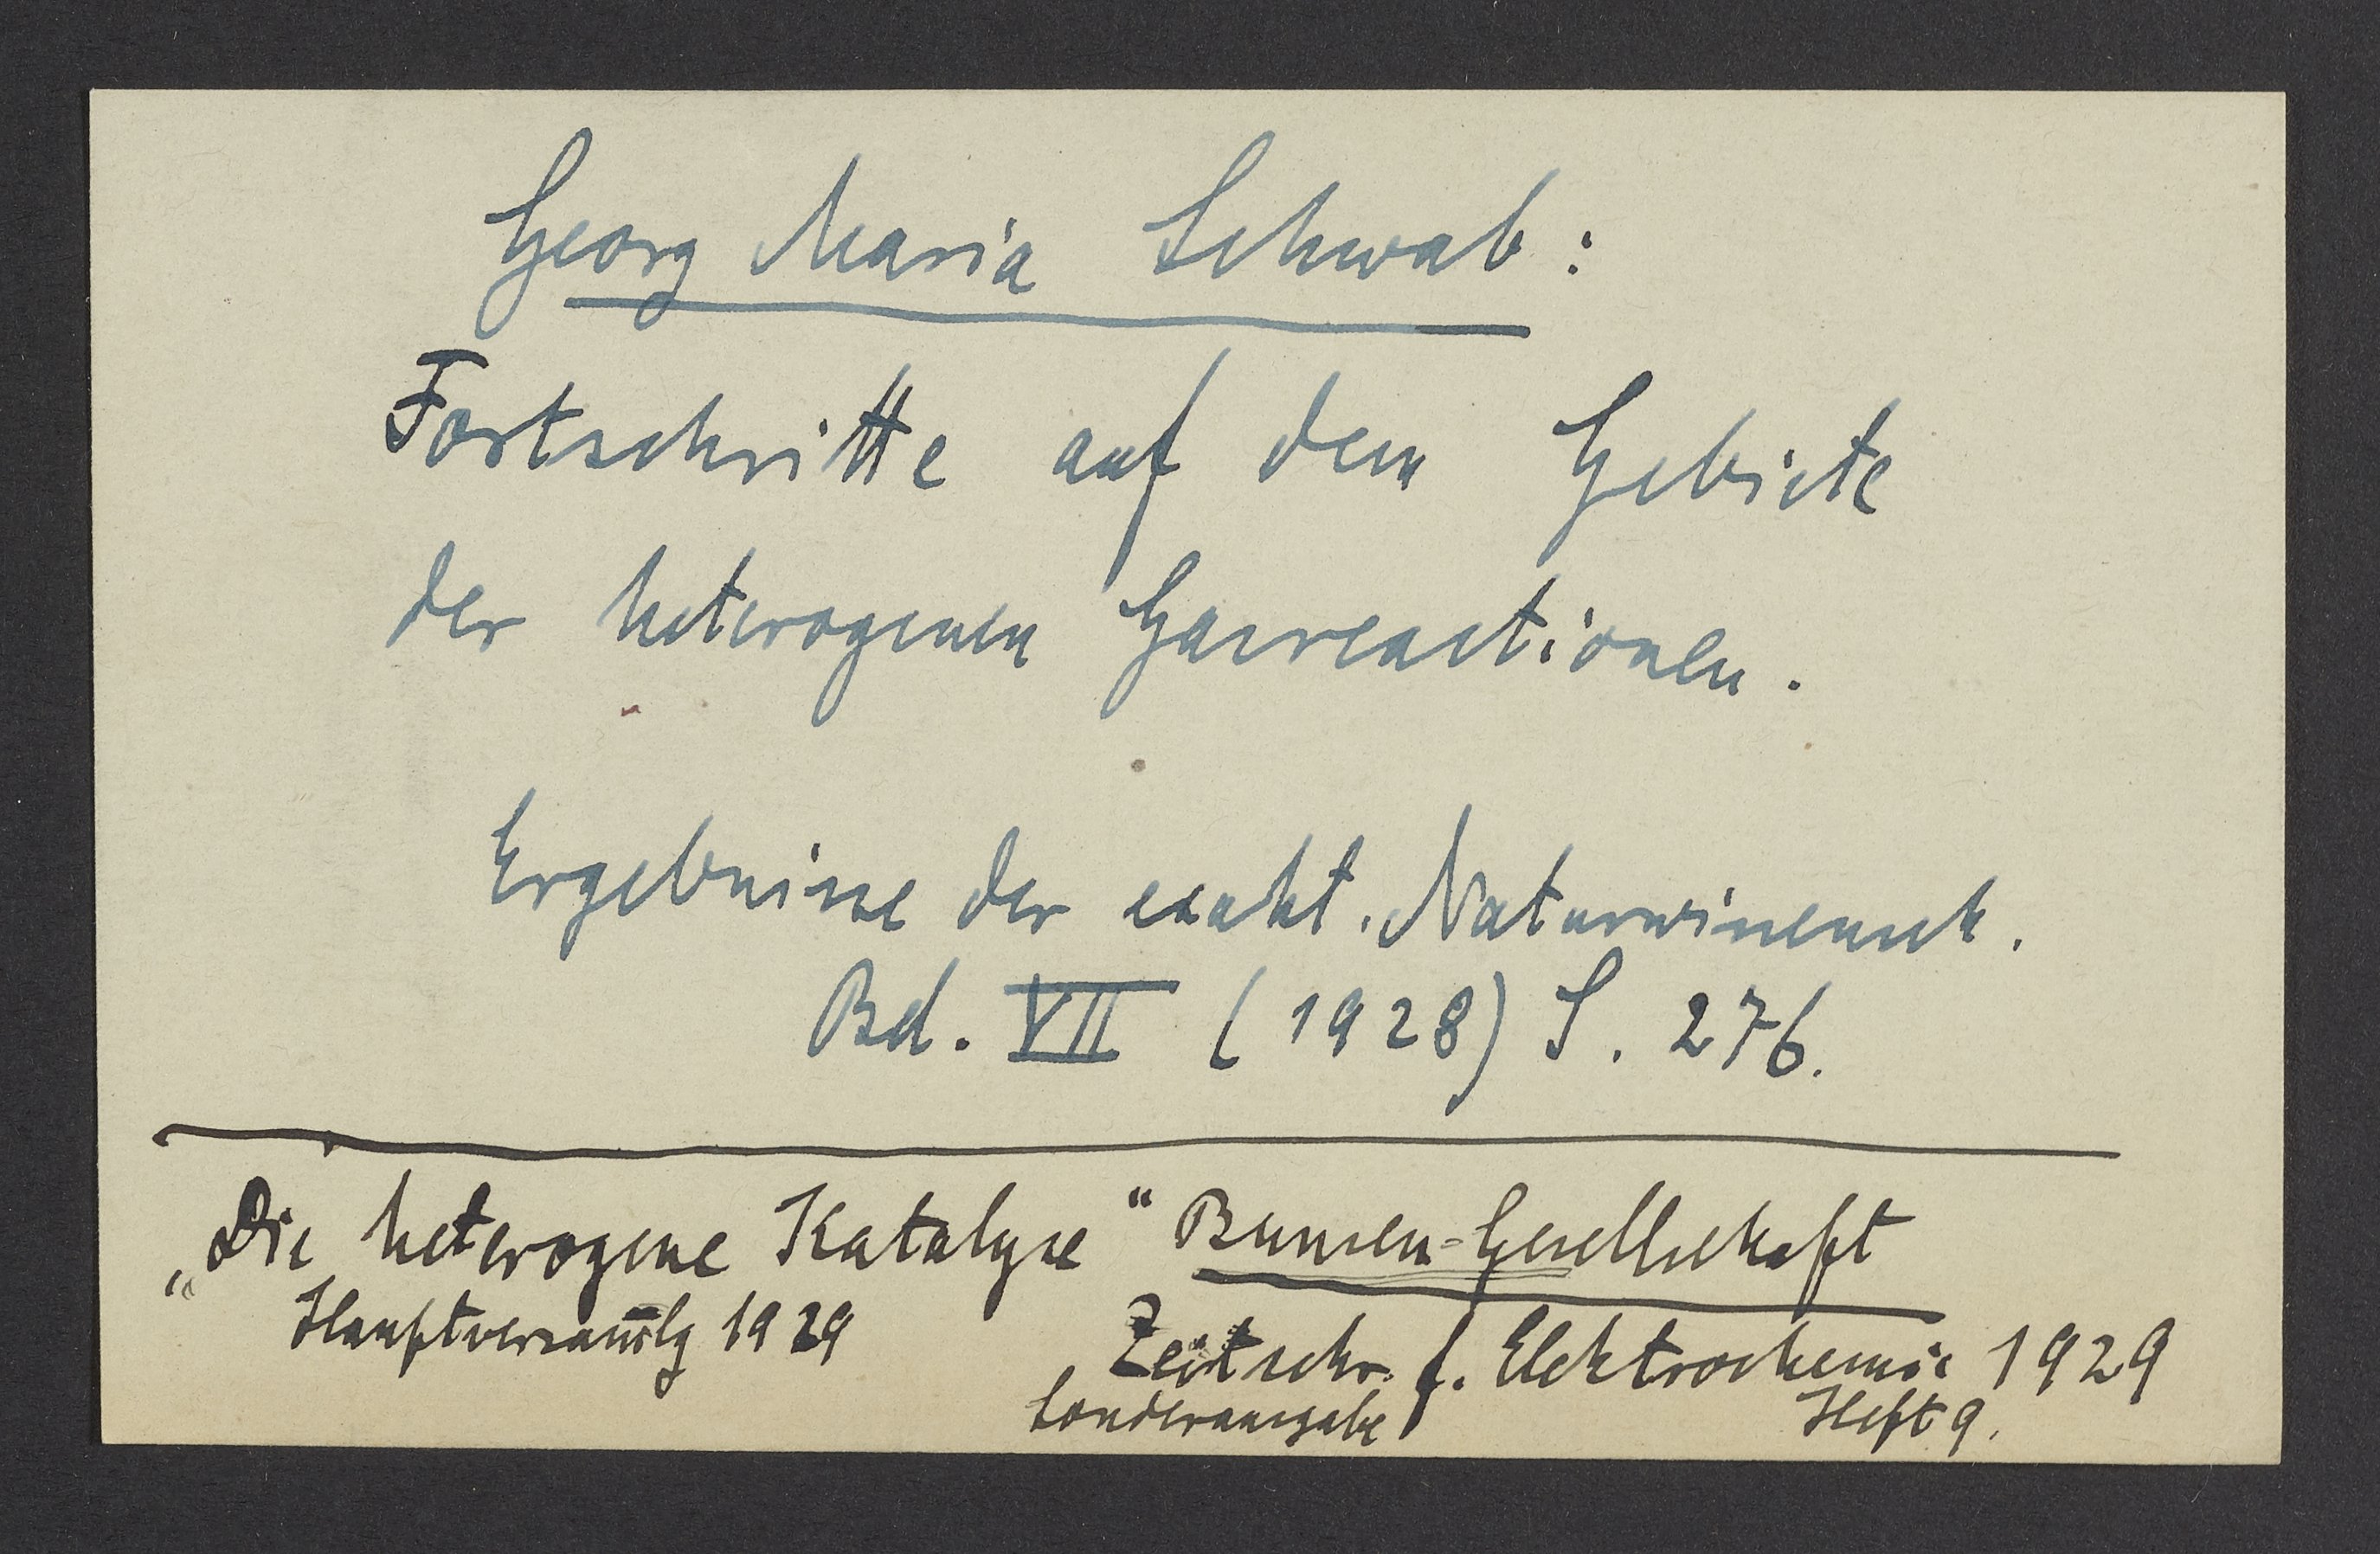 Georg Maria Schwab:
Fortschritte auf dem Gebiete
der heterogenen Gasreactionen.
Ergebnisse der exakt. Naturwissensch.
Bd. VII (1928) S. 276.
„Die heterogene Katalyse“ Bunsen=Gesellschaft
Hauptversam̅lg 1929
Zeitschr. f. Elektrochemie 1929
Sonderausgabe Heft 9.